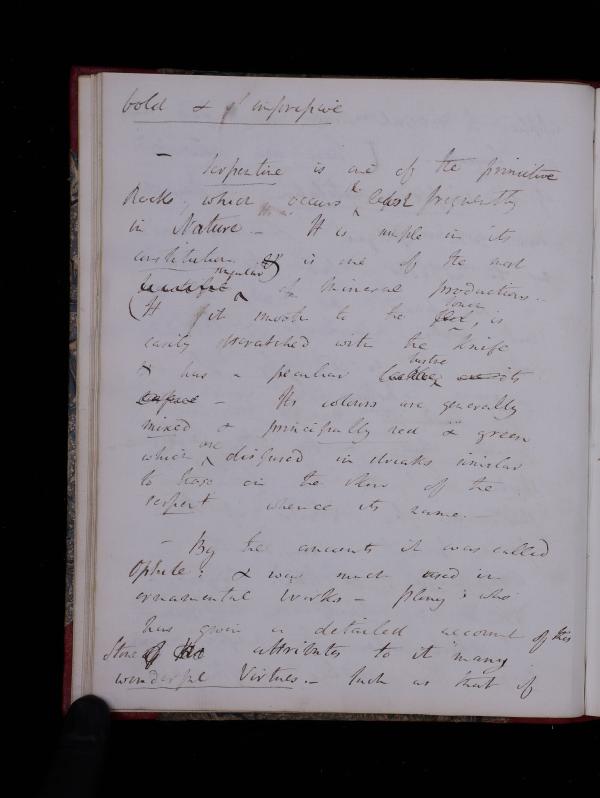 bold & impressive
— Serpentine is one of the primitive
Rocks, which occurs the least frequently
in Nature — It is simple in its
constitution & is one of the most
singular of mineral productions. —
(It is smooth to the touch, is
easily scratched with the Knife
& has a peculiar lustre
— Its colours are generally
mixed & principally red & green
which are disposed in streaks similar
to those on the skin of the
serpent whence its name. —
— By the ancients it was called
Ophite; & was much used in
ornamental works — Pliny who
has given a detailed account of this
Stone attributes to it many
wonderful Virtues. — Such as that of